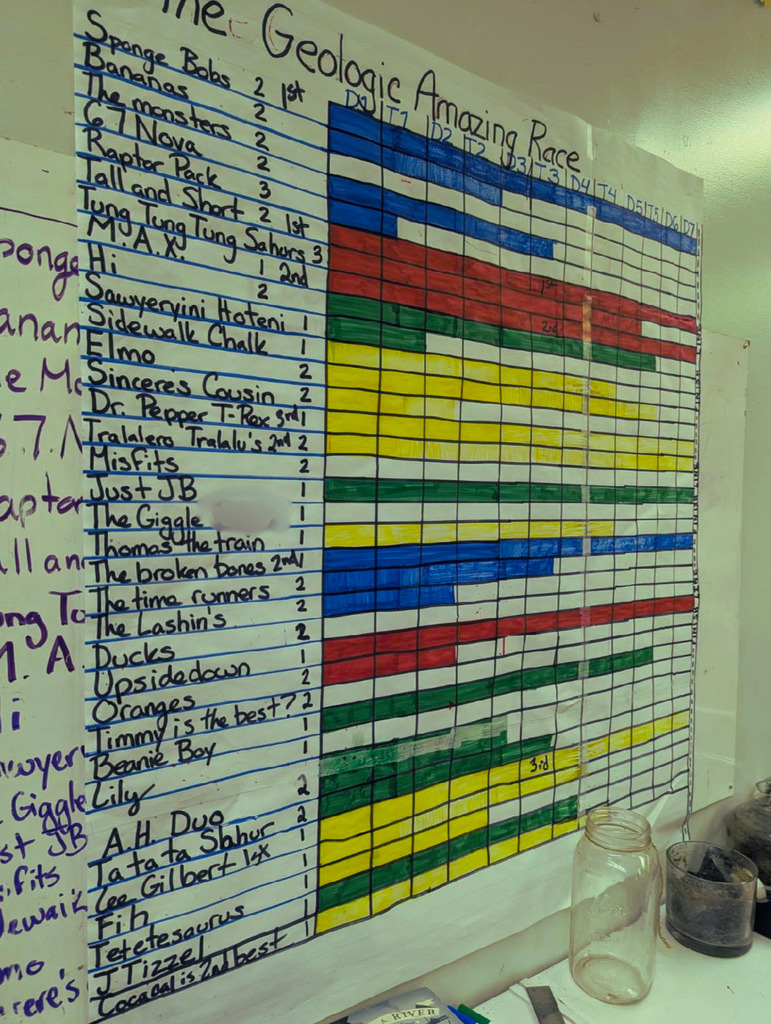 The Geologic Amazing Race
D1 T1 D2 T2 D3 T3 D4 T4 D5 T5 D6 D7
Sponge Bobs 2 1st
Bananas 2
The monsters 2
67 Nova 2
Raptor Pack 3
Tall and Short 2 1st
Tung Tung Tung Sahurs 3
M.A.X. 1 2nd
Hi 2
Sawyeryini Hoteni 1
Sidewalk Chalk 1
Elmo 2
Sincere's Cousin 2
Dr. Pepper T-Rex 3rd 1
Tralalero Tralalu's 2nd 2
Misfits 2
Just JB 1
The Giggle 1
Thomas the train 1
The broken bones 2nd 1
The time runners 2
The Lashin's 2
Ducks 2
Upsidedown 1
Oranges 2
Timmy is the best? 2
Beanie Boy 1
Lily 1
A.H. Duo 2
Tatata Sahur 2
Lee Gilbert 1st 1
Fih 1
Tetetesaurus 1
J Tizzel 1
Cocacal is 2nd best 1
1st
2nd
3rd
ponge
anan
e Mo
67 N
aptor
all an
ung To
M. A
Hi
awyer
Giggle
st JB
sfits
dewalk
mo
cere's
A RIVER